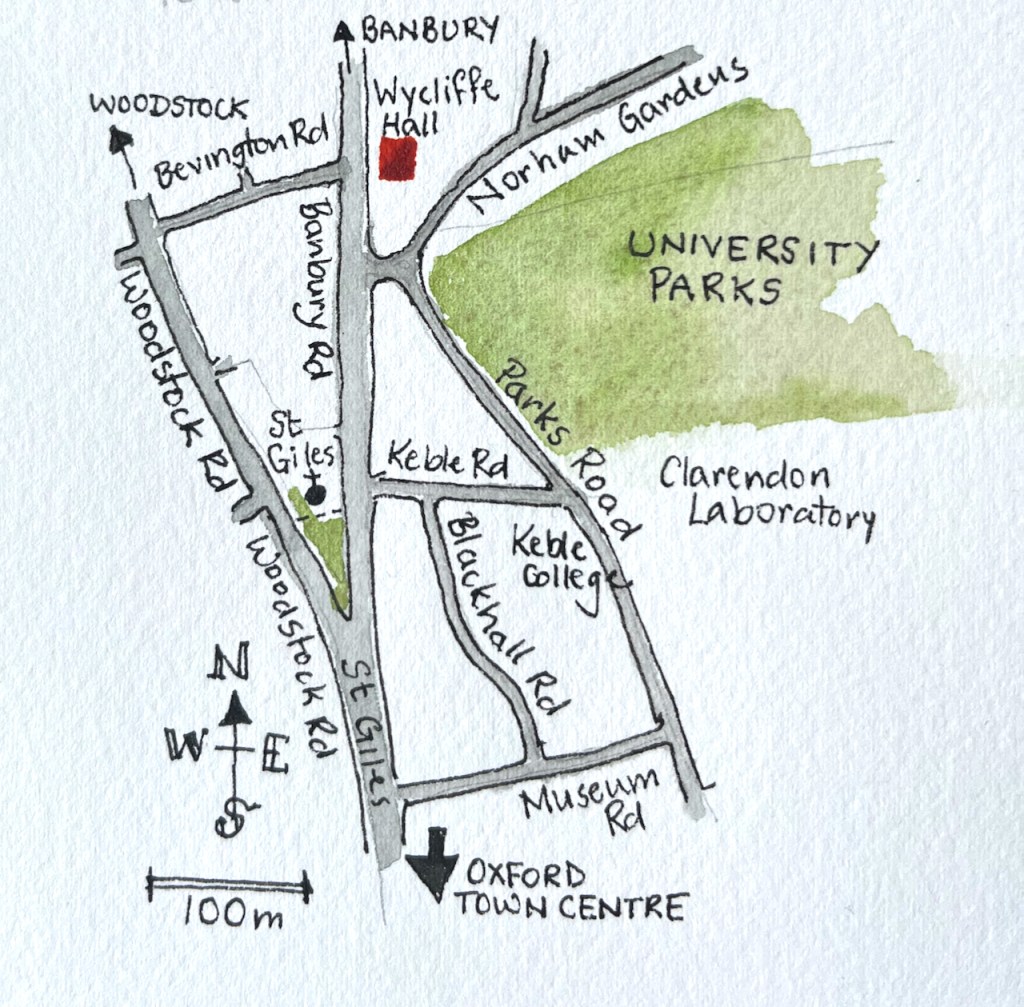 BANBURY
Wycliffe
Hall
WOODSTOCK
Bevington Rd
Norham Gardens
Banbury Rd
UNIVERSITY
PARKS
Woodstock Rd
Parks Road
St
Giles
Keble Rd
Clarendon
Laboratory
Keble
College
Blackhall Rd
Woodstock Rd
St Giles
N
W E
S
Museum
Rd
OXFORD
TOWN CENTRE
100m